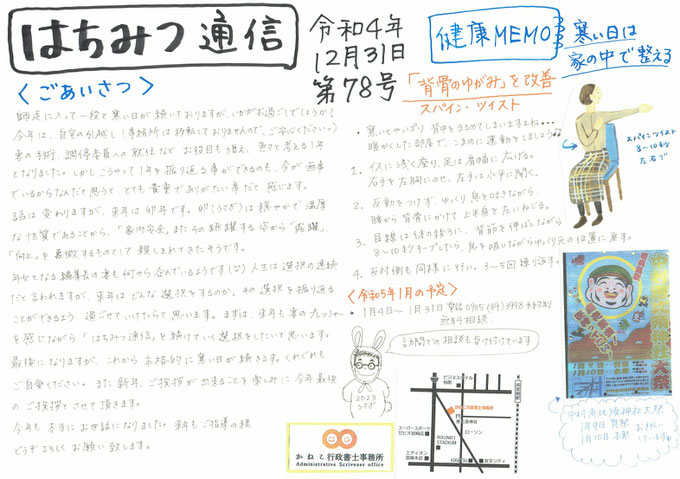 はちみつ通信
令和4年
12月31日
第78号
<ごあいさつ>
師走に入って一段と寒い日が続いておりますが、いかがお過ごしでしょうか?
今年は、自宅の引越し(事務所は移動しておりませんので、ご安心ください。)
妻の手術、調停委員への就任など お役目も増え、色々と考える1年
となりました。しかしこうやって1年を振り返る事ができるのも、今が無事
でいるからなんだと思うと、とても貴重でありがたい事だと感じます。
話は変わりますが、来年は卯年です。卯(うさぎ)は穏やかで温厚
な性質であることから、「家内安全」、またその跳躍する姿から「飛躍」、
「向上」を象徴するものとして 親しまれてきたそうです。
年女となる編集長の妻も何やら企んでいるようです(笑) 人生は選択の連続
だと言われますが、来年はどんな選択をするのか、その選択を振り返る
ことができるよう、過ごせていけたらと思います。まずは、来年も妻のプレッシャー
を感じながら「はちみつ通信」を続けていく選択をしたいと思います。
最後になりますが、これから本格的に寒い日が続きます。くれぐれも
ご自愛ください。また新年、ご挨拶が出来ることを楽しみに今年最後
のご挨拶とさせて頂きます。
今年も本当にお世話になりました。来年もご指導の程
どうぞよろしくお願い致します。
健康MEMO
寒い日は
家の中で整える
「背骨のゆがみ」を改善
スパイン・ツイスト
・寒いとやっぱり背中をまるめてしまいますよね…
暖かくした部屋で、こまめに運動をしましょう
1. イスに浅く座り、足は肩幅に広げる。
右手を左胸にのせ、左手は水平に開く。
2. 反動をつけず、ゆっくり息をはきながら、
腰から背骨にかけて上半身を左にねじる。
3. 目線は体の後ろに、背筋を伸ばしながら
8〜10秒キープしたら、息を吸いながらゆっくり元の位置に戻す。
4. 反対側も同様に行い、3〜5回繰り返す。
スパインツイスト
8〜10秒
左右で
<令和5年1月の予定>
・1月4日〜1月31日 電話0985(84)3998
無料相談
訪問での相談も受け付けています
2023
うさぎ
かねこ行政書士事務所
Administrative Scrivener office
ビジネスホテル
かねこ行政書士事務所
ローソン
スーパースポーツ
ゼビオ宮崎店
ROUND1
STADIUM
エディオン
宮崎本店
宮交シティ
中村恵比須神社大祭
1月9日 宵祭
1月10日 本祭
お手伝い
しています